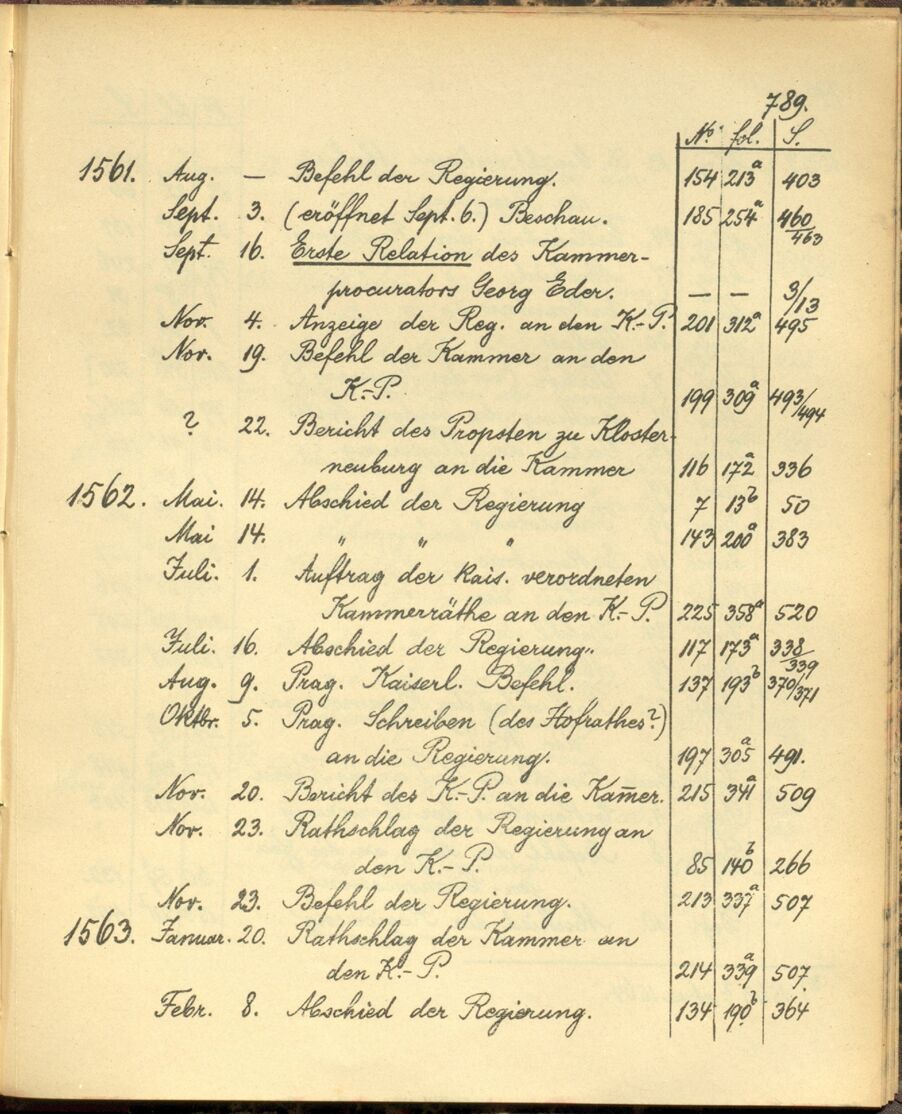 789.
No. fol. S.
1561. Aug. — Befehl der Regierung. 154 213a 403
Sept. 3. (eröffnet Sept. 6.) Beschau. 185 254a 460/463
Sept. 16. Erste Relation des Kammer-
procurators Georg Eder. — — 3/13
Nov. 4. Anzeige der Reg. an den K.-P. 201 312a 495
Nov. 19. Befehl der Kammer an den
K.-P. 199 309a 493/494
? 22. Bericht des Propsten zu Kloster-
neuburg an die Kammer 116 172a 336
1562. Mai. 14. Abschied der Regierung 7 13b 50
Mai 14. " " " 143 200a 383
Juli. 1. Auftrag der kais. verordneten
Kammerräthe an den K.-P. 225 358a 520
Juli. 16. Abschied der Regierung. 117 173a 338/339
Aug. 9. Prag. Kaiserl. Befehl. 137 193b 370/371
Oktbr. 5. Prag. Schreiben (des Hofrathes?)
an die Regierung. 197 305a 491.
Nov. 20. Bericht des K.-P. an die Kam̅er. 215 341a 509
Nov. 23. Rathschlag der Regierung an
den K.-P. 85 140b 266
Nov. 23. Befehl der Regierung. 213 337a 507
1563. Januar. 20. Rathschlag der Kammer an
den K.-P. 214 339a 507.
Febr. 8. Abschied der Regierung. 134 190b 364